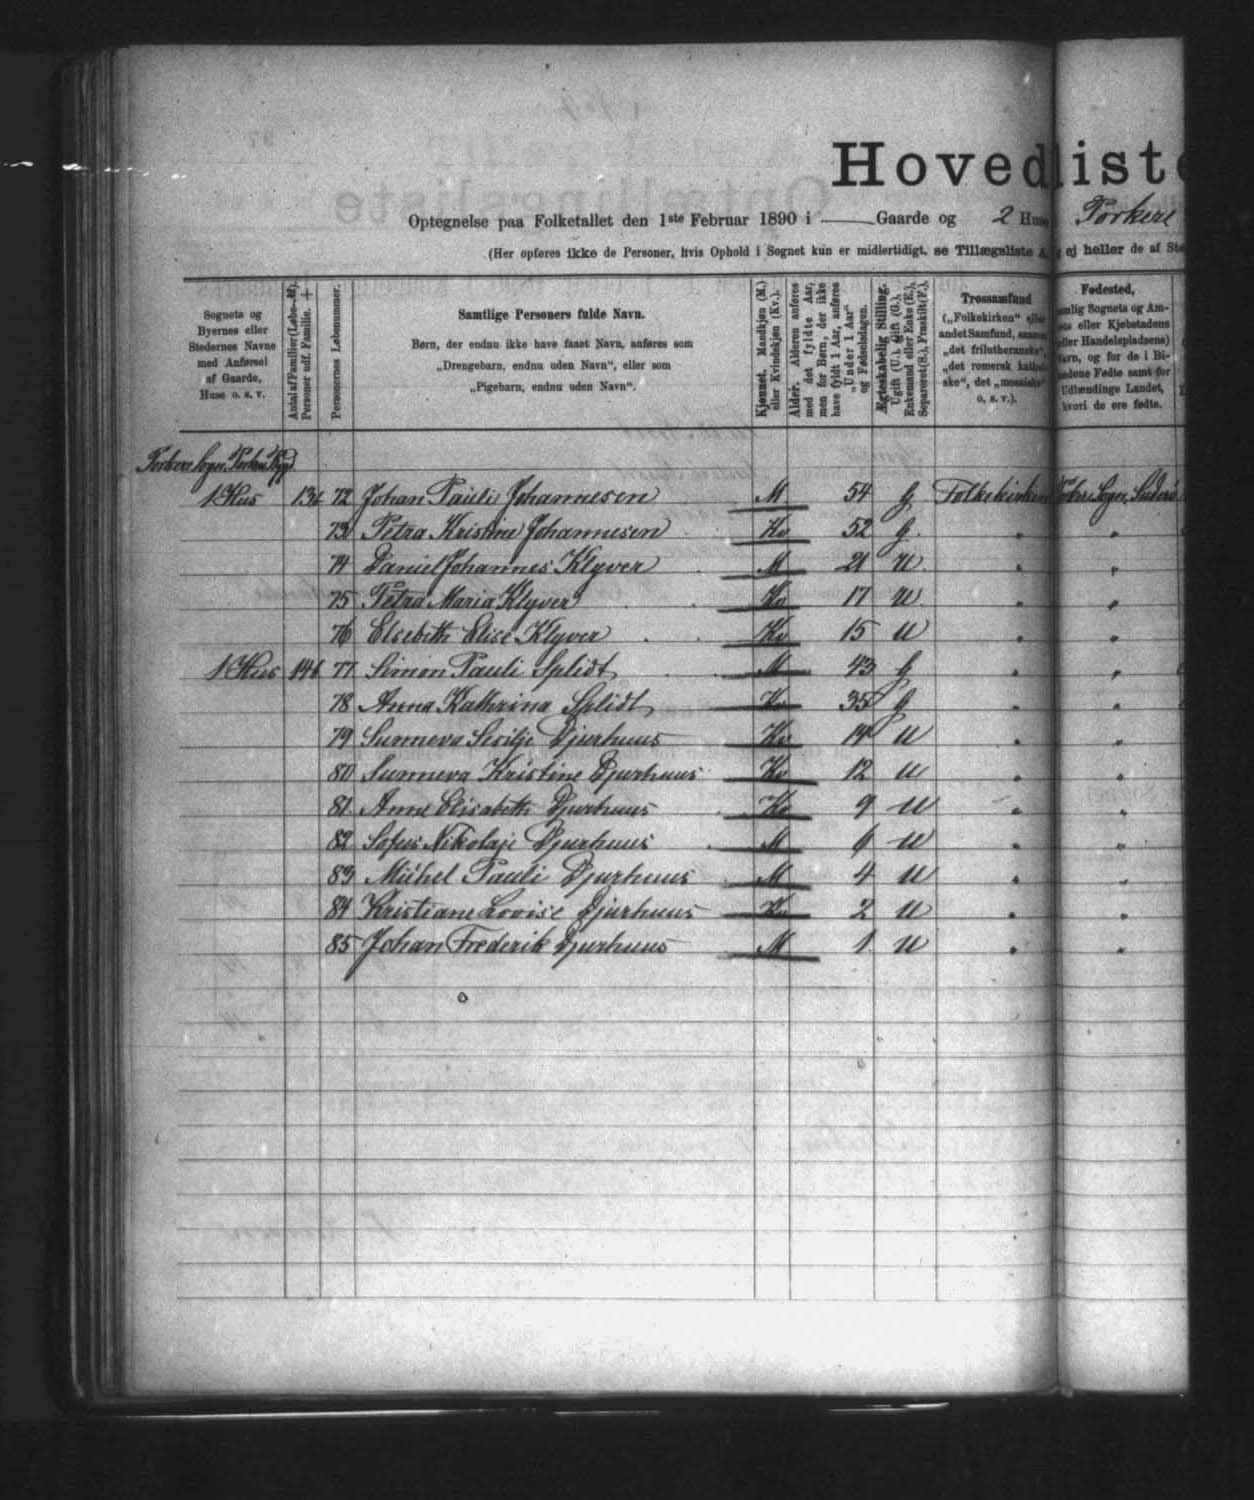 Hovedliste
Optegnelse paa Folketallet den 1ste Februar 1890 i ——— Gaarde og 2 Huse Porkere
(Her opføres ikke de Personer, hvis Ophold i Sognet kun er midlertidigt, se Tillægsliste A, ej heller de af
Sognets og Byernes eller Stedernes Navne med Anførsel af Gaarde, Huse o. s. v.
Antal af Familier (Løbe-№). Personer udf. Familie. +
Personernes Løbenummer.
Samtlige Personers fulde Navn.
Børn, der endnu ikke have faaet Navn, anføres som
„Drengebarn, endnu uden Navn“, eller som
„Pigebarn, endnu uden Navn“.
Kjønnet. Mandkjøn (M.) eller Kvindekjøn (Kv.).
Alder. Alderen anføres med det fyldte Aar, men for Børn, der ikke have fyldt 1 Aar, anføres „Under 1 Aar“ og Fødselsdagen.
Ægteskabelig Stilling. Ugift (U.), Gift (G.), Enkemand eller Enke (E.), Separeret (S.), Fraskilt (F.).
Trossamfund („Folkekirken“ eller andet Samfund, saasom „det frilutheranske“, „det romersk katholske“, det „mosaiske“ o. s. v.).
Fødested, nemlig Sognets og Amtets eller Kjøbstadens (eller Handelspladsens) Navn, og for de i Bilandene Fødte samt for Udlændinge Landet, hvori de ere fødte.
Porkere Sogn, Porkere Bygd
1 Hus 13 72 Johan Pauli Johannesen M 54 G Folkekirken Porkere Sogn, Suderø
73 Petra Kristine Johannesen Kv 52 G. " "
74 Daniel Johannes Klyver M 21 U. " "
75 Petra Maria Klyver Kv 17 U. " "
76 Elsebeth Elise Klyver Kv 15 U " "
1 Hus 14 77 Simon Pauli Splidt M 43 G " "
78 Anna Kathrina Splidt Kv 35 G " "
79 Sunneva Secilje Djurhuus Kv 14 U " "
80 Sunneva Kristine Djurhuus Kv 12 U " "
81 Anne Elisabeth Djurhuus Kv 9 U " "
82 Sofus Nikolaje Djurhuus M 6 U " "
83 Michel Pauli Djurhuus M 4 U " "
84 Kristiane Lovise Djurhuus Kv 2 U " "
85 Johan Frederik Djurhuus M 1 U " "